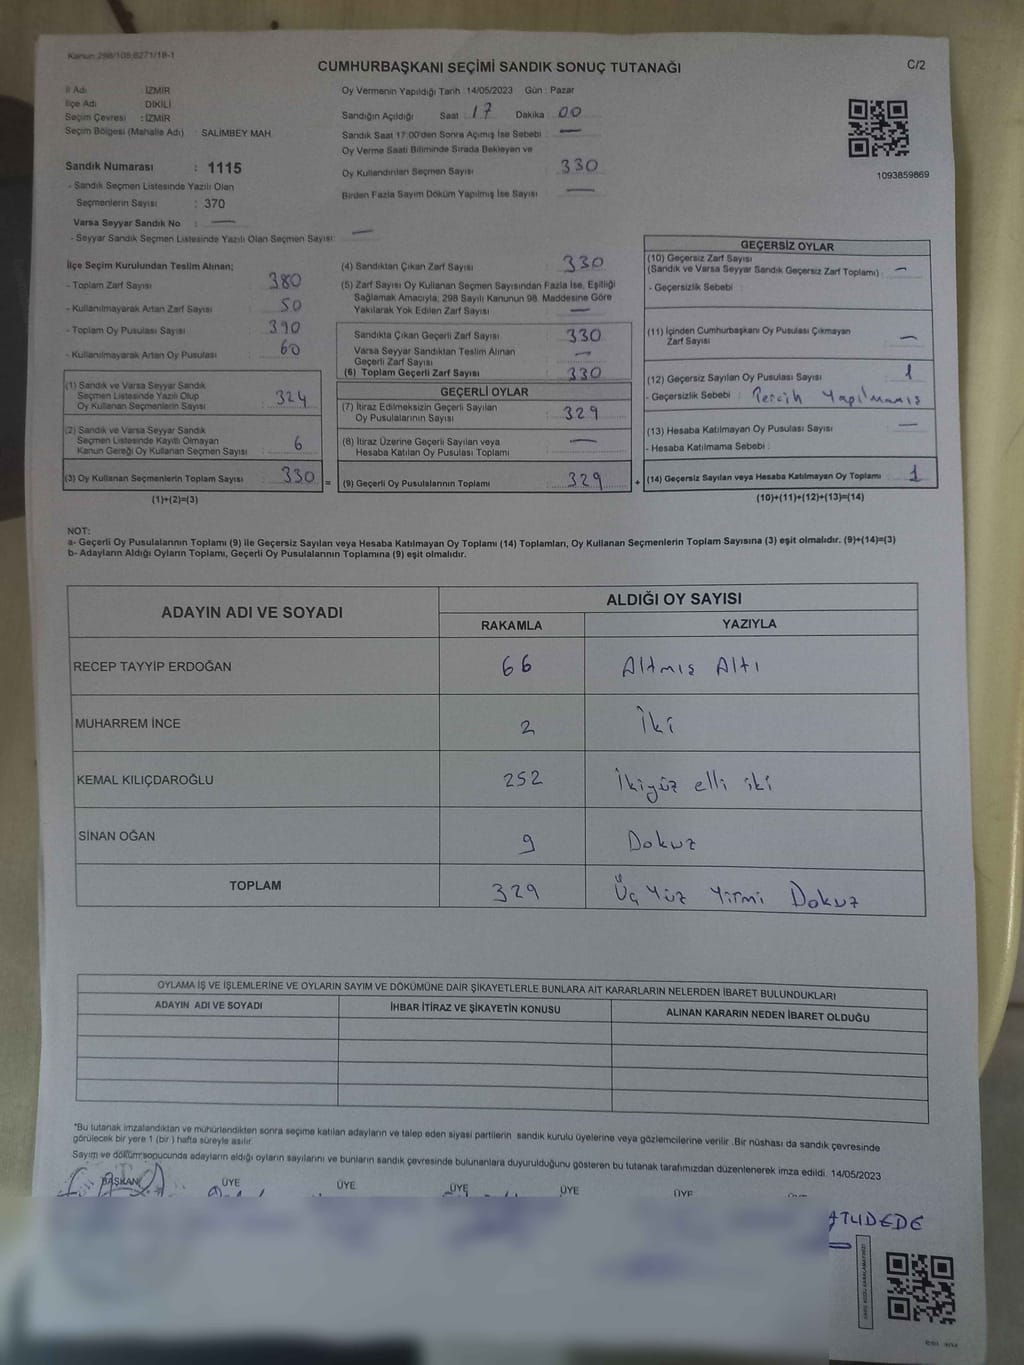 Kanun:298/105,6271/18-1
CUMHURBAŞKANI SEÇİMİ SANDIK SONUÇ TUTANAĞI
C/2
İl Adı : İZMİR
İlçe Adı : DİKİLİ
Seçim Çevresi : İZMİR
Seçim Bölgesi (Mahalle Adı) : SALİMBEY MAH.
Sandık Numarası : 1115
- Sandık Seçmen Listesinde Yazılı Olan
Seçmenlerin Sayısı : 370
Varsa Seyyar Sandık No : —
- Seyyar Sandık Seçmen Listesinde Yazılı Olan Seçmen Sayısı: —
Oy Vermenin Yapıldığı Tarih : 14/05/2023 Gün : Pazar
Sandığın Açıldığı Saat 17 Dakika 00
Sandık Saat 17:00'den Sonra Açımış İse Sebebi : —
Oy Verme Saati Bitiminde Sırada Bekleyen ve
Oy Kullandırılan Seçmen Sayısı : 330
Birden Fazla Sayım Döküm Yapılmış İse Sayısı : —
1093859869
İlçe Seçim Kurulundan Teslim Alınan;
- Toplam Zarf Sayısı : 380
- Kullanılmayarak Artan Zarf Sayısı : 50
- Toplam Oy Pusulası Sayısı : 390
- Kullanılmayarak Artan Oy Pusulası : 60
(1) Sandık ve Varsa Seyyar Sandık
Seçmen Listesinde Yazılı Olup
Oy Kullanan Seçmenlerin Sayısı : 324
(2) Sandık ve Varsa Seyyar Sandık
Seçmen Listesinde Kayıtlı Olmayan
Kanun Gereği Oy Kullanan Seçmen Sayısı : 6
(3) Oy Kullanan Seçmenlerin Toplam Sayısı : 330 =
(1)+(2)=(3)
(4) Sandıktan Çıkan Zarf Sayısı : 330
(5) Zarf Sayısı Oy Kullanan Seçmen Sayısından Fazla İse, Eşitliği
Sağlamak Amacıyla, 298 Sayılı Kanunun 98. Maddesine Göre
Yakılarak Yok Edilen Zarf Sayısı : —
Sandıkta Çıkan Geçerli Zarf Sayısı : 330
Varsa Seyyar Sandıktan Teslim Alınan
Geçerli Zarf Sayısı : —
(6) Toplam Geçerli Zarf Sayısı : 330
GEÇERLİ OYLAR
(7) İtiraz Edilmeksizin Geçerli Sayılan
Oy Pusulalarının Sayısı : 329
(8) İtiraz Üzerine Geçerli Sayılan veya
Hesaba Katılan Oy Pusulası Toplamı : —
(9) Geçerli Oy Pusulalarının Toplamı : 329 +
GEÇERSİZ OYLAR
(10) Geçersiz Zarf Sayısı
(Sandık ve Varsa Seyyar Sandık Geçersiz Zarf Toplamı) : —
- Geçersizlik Sebebi :
(11) İçinden Cumhurbaşkanı Oy Pusulası Çıkmayan
Zarf Sayısı : —
(12) Geçersiz Sayılan Oy Pusulası Sayısı : 1
- Geçersizlik Sebebi : Tercih Yapılmamış
(13) Hesaba Katılmayan Oy Pusulası Sayısı : —
- Hesaba Katılmama Sebebi :
(14) Geçersiz Sayılan veya Hesaba Katılmayan Oy Toplamı : 1
(10)+(11)+(12)+(13)=(14)
NOT:
a- Geçerli Oy Pusulalarının Toplamı (9) ile Geçersiz Sayılan veya Hesaba Katılmayan Oy Toplamı (14) Toplamları, Oy Kullanan Seçmenlerin Toplam Sayısına (3) eşit olmalıdır. (9)+(14)=(3)
b- Adayların Aldığı Oyların Toplamı, Geçerli Oy Pusulalarının Toplamına (9) eşit olmalıdır.
ADAYIN ADI VE SOYADI
ALDIĞI OY SAYISI
RAKAMLA YAZIYLA
RECEP TAYYİP ERDOĞAN 66 Altmış Altı
MUHARREM İNCE 2 İki
KEMAL KILIÇDAROĞLU 252 İkiyüz elli iki
SİNAN OĞAN 9 Dokuz
TOPLAM 329 Üç Yüz Yirmi Dokuz
OYLAMA İŞ VE İŞLEMLERİNE VE OYLARIN SAYIM VE DÖKÜMÜNE DAİR ŞİKAYETLERLE BUNLARA AİT KARARLARIN NELERDEN İBARET BULUNDUKLARI
ADAYIN ADI VE SOYADI İHBAR İTİRAZ VE ŞİKAYETİN KONUSU ALINAN KARARIN NEDEN İBARET OLDUĞU
*Bu tutanak imzalandıktan ve mühürlendikten sonra seçime katılan adayların ve talep eden siyasi partilerin sandık kurulu üyelerine veya gözlemcilerine verilir .Bir nüshası da sandık çevresinde
görülecek bir yere 1 (bir ) hafta süreyle asılır.
Sayım ve döküm sonucunda adayların aldığı oyların sayılarını ve bunların sandık çevresinde bulunanlara duyurulduğunu gösteren bu tutanak tarafımızdan düzenlenerek imza edildi. 14/05/2023
BAŞKAN ÜYE ÜYE ÜYE ÜYE ÜYE
ATLIDEDE